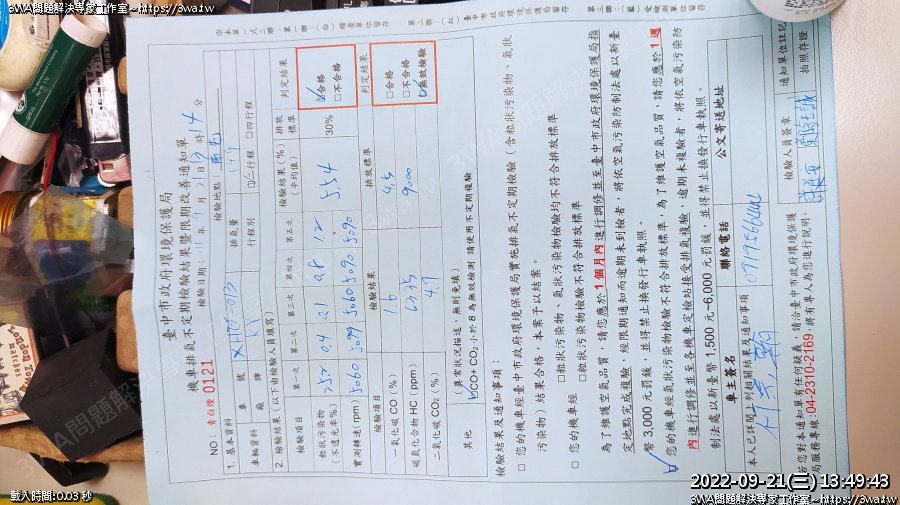 3WA問題解決專家工作室~https://3wa.tw
3WA問題解決專家工作室~https://3wa.tw
※本單一式三聯 第一聯(白)稽查單位留存 第二聯(紅)臺中市政府環境保護局留存 第三聯(藍)受檢測單位留存
臺中市政府環境保護局
機車排氣不定期檢驗結果暨限期改善通知單
NO:青白煙 0121
檢驗日期:111年9月21日 14分
檢驗地點:
1.基本資料
車輛資料
車號
廠牌
KY
排氣量
149
行程別
☑二行程 □四行程
2.檢驗結果(以下由檢驗人員填寫)
檢驗項目 第一次 第二次 第三次 第四次 第五次 檢驗結果(%)(平均值) 排放標準 判定結果
粒狀污染物(不透光率%) 25.2 0.4 0.1 0.8 1.2 5.54 30% ☑合格 □不合格
實測轉速(rpm) 5060 5099 5060 5090 5090
檢驗項目 檢驗結果 排放標準 判定結果
一氧化碳 CO (%) 1.6 4.5 □合格
碳氫化合物 HC (ppm) 6335 9000 □不合格
二氧化碳 CO₂ (%) 4.7 ☑無效檢驗
其他 (異常狀況描述,無則免填)
☑CO+CO₂小於8為無效檢測 請使用不定期複驗
檢驗結果及通知事項:
□您的機車經臺中市政府環境保護局實施排氣不定期檢驗(含粒狀污染物、氣狀
污染物)結果合格,本案予以結案。
□您的機車經 □粒狀污染物、氣狀污染物檢驗均不符合排放標準
□粒狀污染物檢驗不符合排放標準
為了維護空氣品質,請您應於1個月內進行調修並至臺中市政府環境保護局指
定地點完成複驗,經限期通知而逾期未到檢者,將依空氣污染防制法處以新臺
幣3,000元罰鍰,並得禁止換發行車執照。
☑您的機車經氣狀污染物檢驗不符合排放標準,為了維護空氣品質,請您應於1週
內進行調修並至各機車定檢站接受排氣複驗,逾期未複驗者,將依空氣污染防
制法處以新臺幣1,500元~6,000元罰鍰,並得禁止換發行車執照。
車主簽名 聯絡電話 公文寄送地址
本人已詳閱上列相關結果及通知事項
若您對本通知單有任何疑義,請洽臺中市政府環境保護
局服務專線:04-2310-2169,將有專人為您進行說明。
檢驗人員簽章
通知單位註記
拍照存證
2022-09-21(三) 13:49:43
載入時間:0.03 秒
3WA問題解決專家工作室~https://3wa.tw